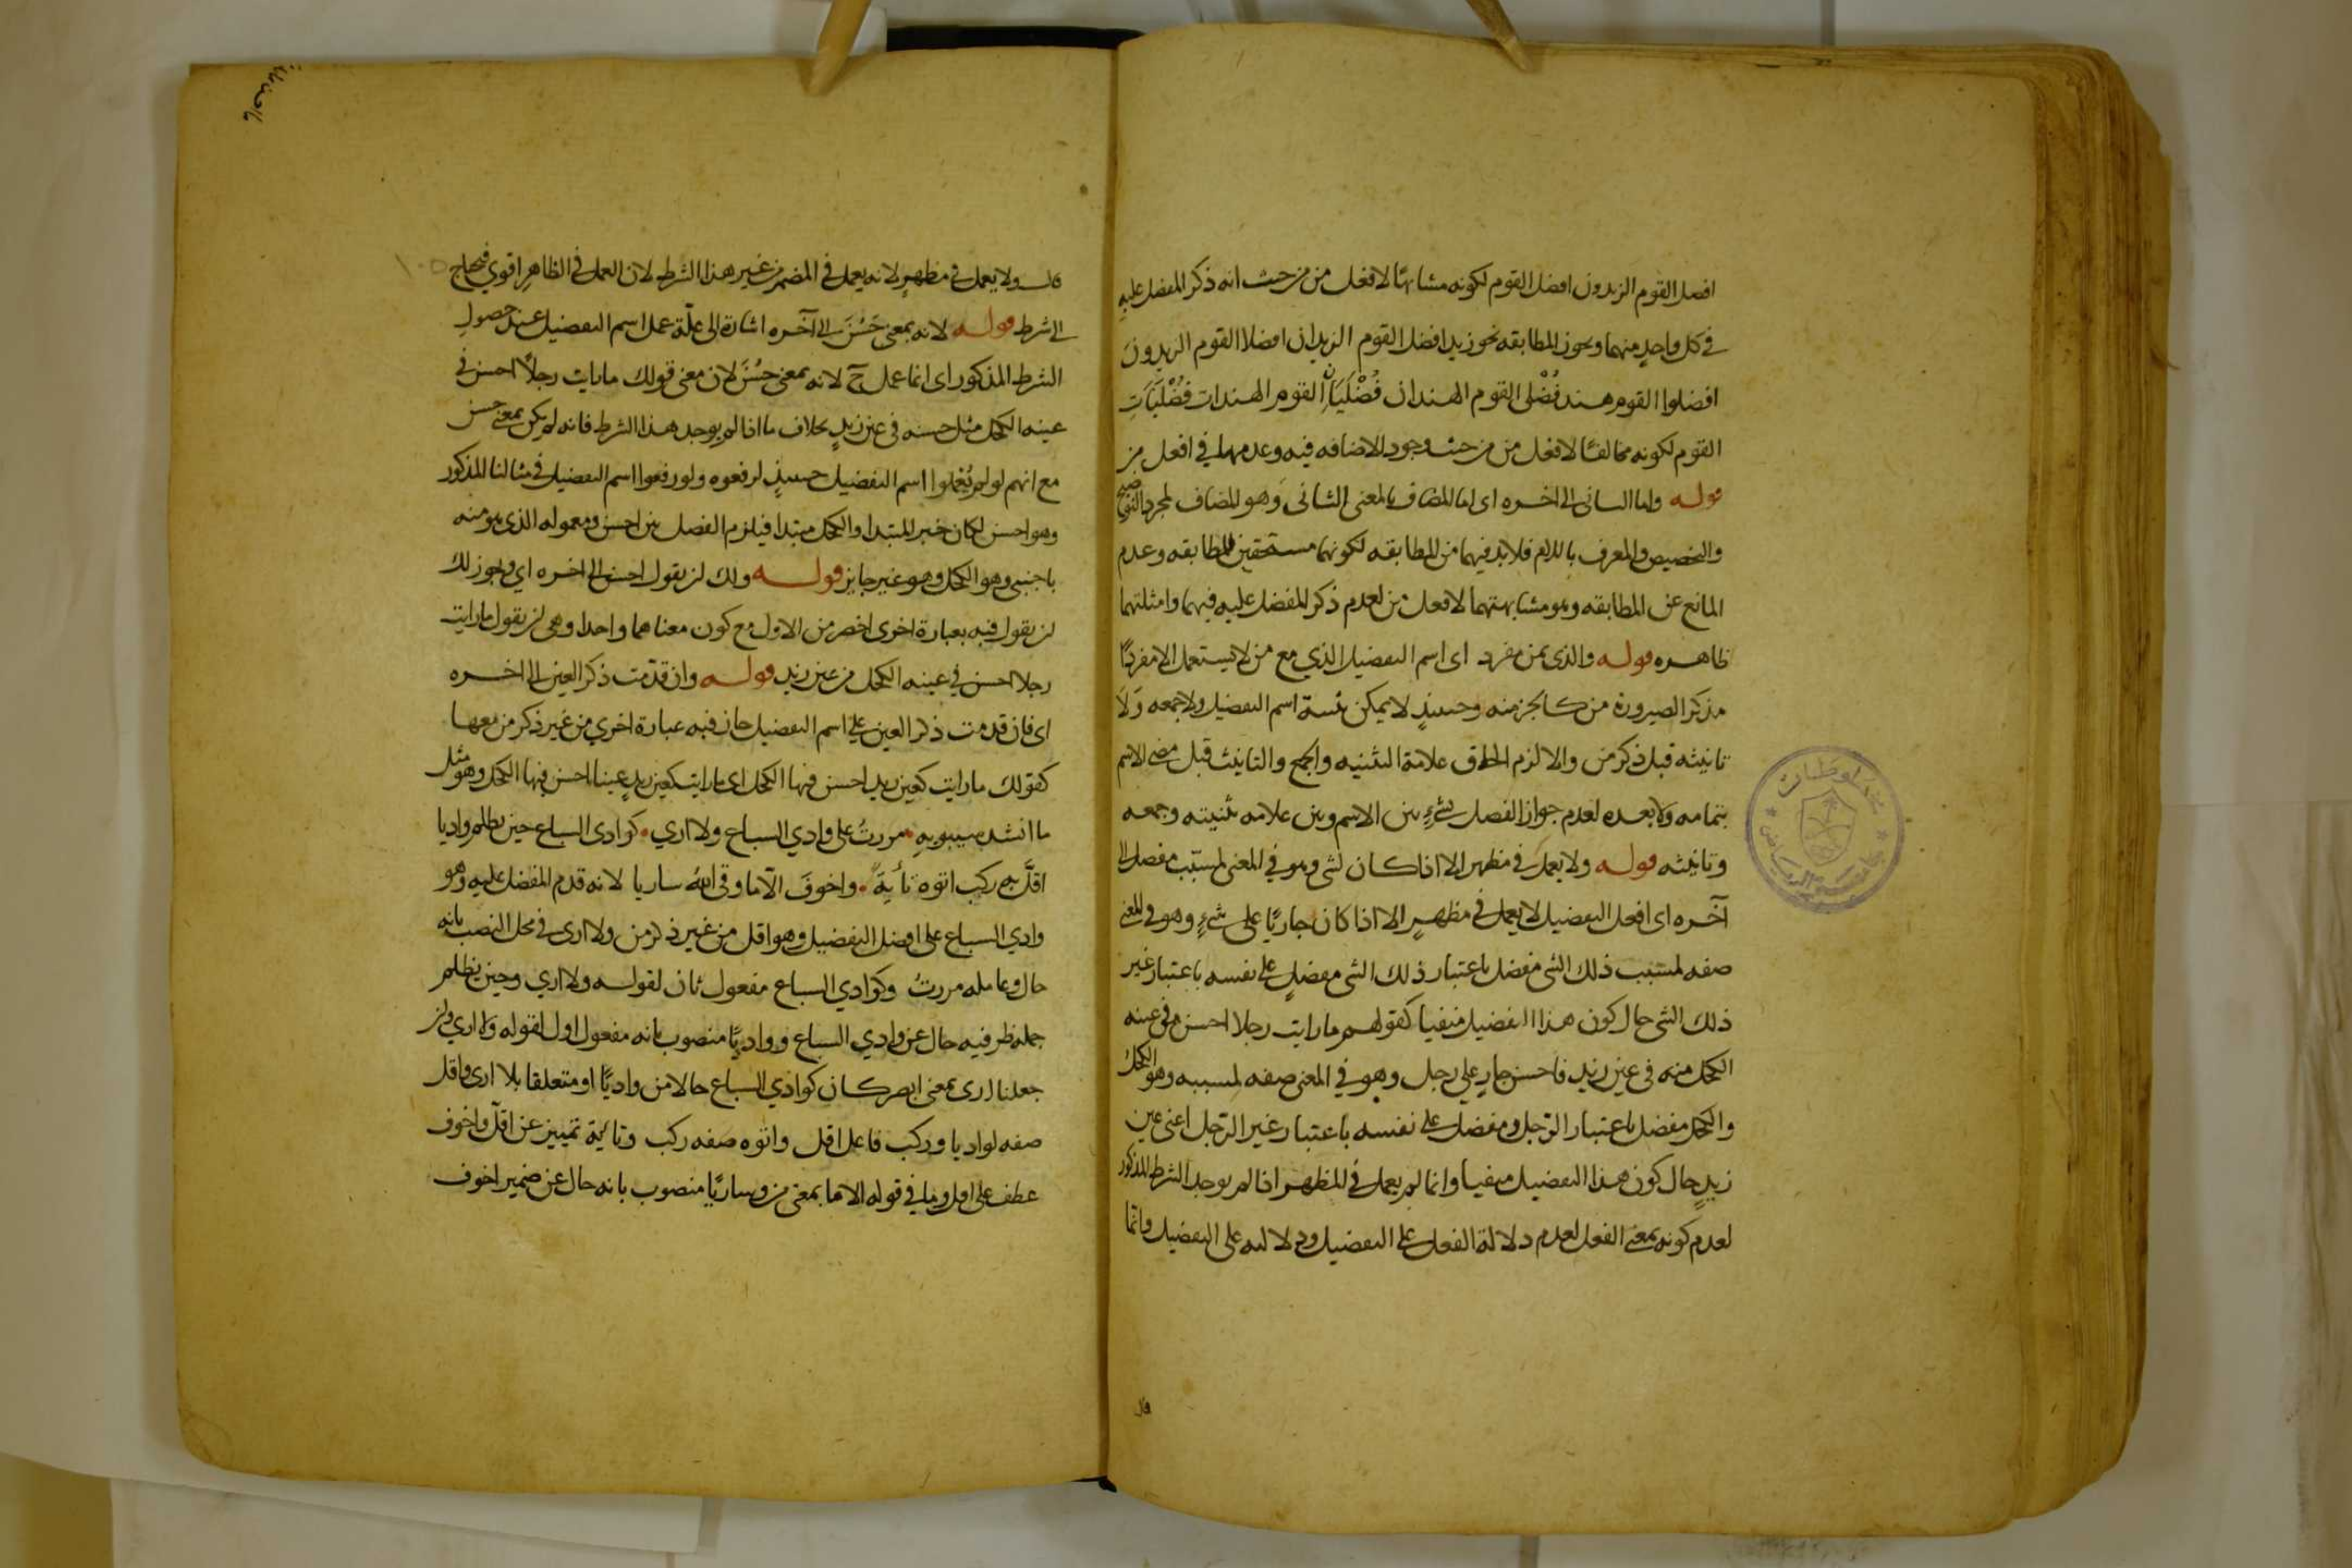 افضل القوم الزيدون افضل القوم لكونه مشابهًا لافعل من من حيث انه ذكر المفضل عليه
في كل واحدٍ منهما ويجوز المطابقه نحو زيد افضل القوم الزيدان افضلا القوم الزيدونَ
افضلوا القوم هند فُضْلى القوم الهندان فُضْلَيَانِ القوم الهندات فُضْلَيَاتِ
القوم لكونه مخالفًا لافعل من من حيث وجود الاضافه فيه وعدمها في افعل من
قوله واما الثانى الى اخره اى اما المضاف بالمعنى الثانى وهو المضاف لمجرد التوضيح
والتخصيص والمعرف باللام فلا بد فيهما من المطابقه لكونهما مستحقين للمطابقه وعدم
المانع عن المطابقه وهو مشابهتهما لافعل من لعدم ذكر المفضل عليه فيهما وامثلتهما
ظاهره قوله والذى بمن مفرد اى اسم التفضيل الذي مع من لا يستعمل الا مفردًا
مذكر الصيرورة من كالجزء منه وحينئذٍ لا يمكن تثنية اسم التفضيل ولا جمعه وَلَا
تانيثه قبل ذكر من والا لزم الحاق علامة التثنيه والجمع والتانيث قبل مضي الاسم
بتمامه وَلا بعده لعدم جواز الفصل بشيءٍ بين الاسم وبين علامه تثنيته وجمعه
وتانيثه قوله ولا يعمل في مظهر الا اذا كان لشى وهو في المعنى لمسبّب مفضل الى
آخره اى افعل التفضيل لا يعمل في مظهرٍ الا اذا كان جاريًا على شيءٍ وهو في المعنى
صفه لمسبب ذلك الشى مفضل باعتبار ذلك الشى مفضلٍ على نفسه باعتبار غير
ذلك الشى حال كون هذا التفضيل منفيا كقولهم ما رايت رجلا احسن في عينه
الكحل منه في عين زيد فاحسن جارٍ علي رجل وهو في المعنى صفه لمسببه وهو الكحل
والكحل مفضل باعتبار الرّجل ومفضل على نفسه باعتبار غير الرّجل اعنى عين
زيدٍ حال كون هذا التفضيل منفيا وانما لم يعمل في المظهر اذا لم يوجد الشرط المذكور
لعدم كونه بمعنى الفعل لعدم دلالة الفعل على التفضيل ودلالته على التفضيل وانما
قال
قال ولا يعمل في مظهرٍ لانه يعمل في المضمر من غير هذا الشرط لان العمل في الظاهرِ اقوي فيحتاج
الى شرط قوله لانه بمعنى حَسُنَ الى آخره اشارة الى علّة عمل اسم التفضيل عند حصول
الشرط المذكور اى انما عمل حٓ لانه بمعنى حَسُنَ لان معنى قولك ما رايت رجلًا احسن في
عينه الكحل مثل حسنه في عين زيدٍ بخلاف ما اذا لم يوجد هذا الشرط فانه لم يكن بمعنى حسن
مع انهم لو لم يُعْمِلوا اسم التفضيل حينئذٍ لرفعوه ولو رفعوا اسم التفضيل في مثالنا المذكور
وهو احسن لكان خبر المبتدا والكحل مبتدا فيلزم الفصل بين احسن ومعموله الذي هو منه
باجنبى وهو الكحل وهو غير جايز قوله ولك ان يقول احسن الى اخره اي ويجوز لك
ان يقول فيه بعبارة اخرى اخصر من الاول مع كون معناهما واحدا وهى ان يقول ما رايت
رجلا احسن في عينه الكحل من عين زيد قوله وان قدّمت ذكر العين الى اخره
اى فان قدمت ذكر العين على اسم التفضيل جاز فيه عبارة اخري من غير ذكر من معها
كقولك ما رايت كعين زيد احسن فيها الكحل اى ما رايت كعين زيدٍ عينا احسن فيها الكحل وهو مثل
ما انشد سيبويهِ مررتُ على وادي السباع ولا اري كوادى السباع حين يظلم واديا
اقلَّ به ركب اتوه تأيّةً واخوفَ الّا ما وقى اللّهُ ساريا لانه قدم المفضل عليه وهو
وادي السباع على افضل التفضيل وهو اقل من غير ذكر من ولا ارى في محل النصب بانه
حال وعامله مررتُ وكوادي السباع مفعول ثان لقوله ولا اري وحين يظلم
جمله ظرفيه حال عن وادي السباع وواديًا منصوب بانه مفعول اول لقوله وَلا اري وان
جعلنا ارى بمعنى ابصر كان كوادي السباع حالا من واديًا او متعلقا بلا ارى واقل
صفه لواديا وركب فاعل اقل واتوه صفه ركب وتائية تمييز عن اقلّ واخوف
عطف على اقل وما في قوله الا ما بمعنى من وساريًا منصوب بانه حال عن ضمير اخوف